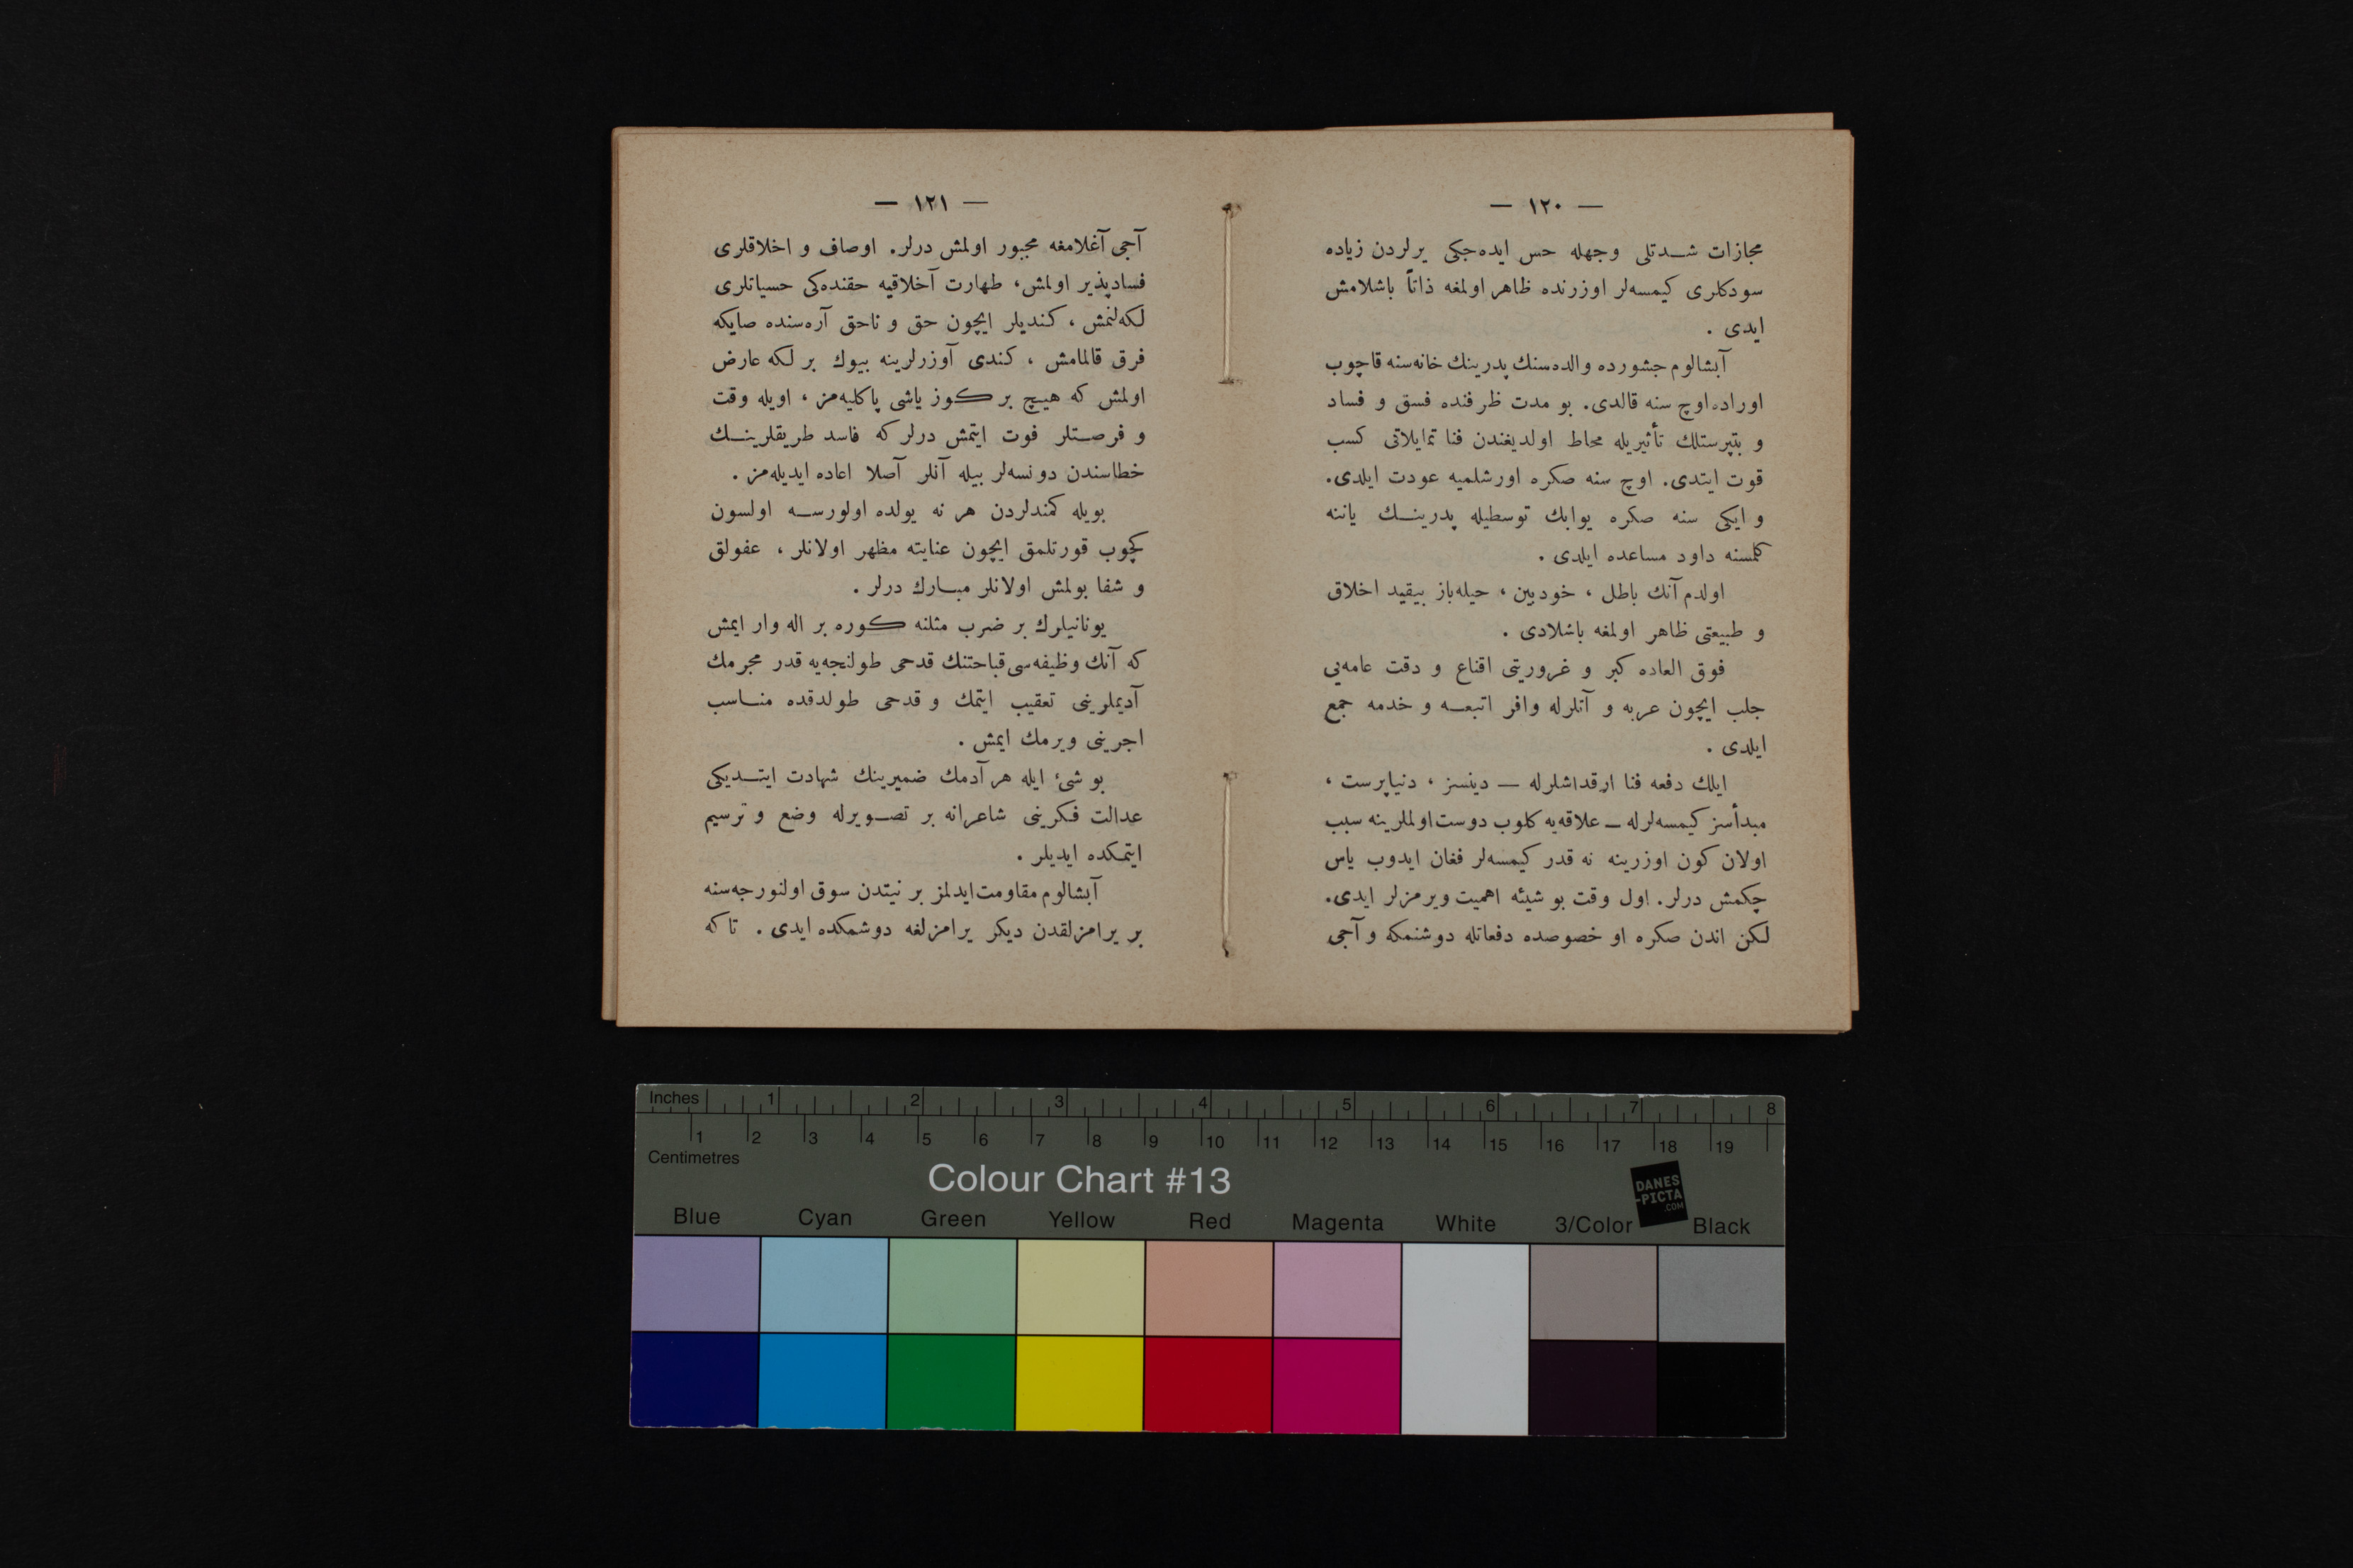 — ١٢٠ —
مجازات شدتلی وجهله حس ایده‌جکی یرلردن زیاده
سودکلری کیمسه‌لر اوزرنده ظاهر اولمغه ذاتاً باشلامش
ایدی .
آبشالوم جشورده والده‌سنك پدرینك خانه‌سنه قاچوب
اوراده اوچ سنه قالدی. بو مدت ظرفنده فسق و فساد
و بتپرستلك تأثیریله محاط اولدیغندن فنا تمایلاتی کسب
قوت ایتدی. اوچ سنه صکره اورشلمیه عودت ایلدی.
و ایکی سنه صکره یوابك توسطیله پدرینك یاننه
کلمسنه داود مساعده ایلدی .
اولدم آنك باطل ، خودبین ، حیله‌باز بیقید اخلاق
و طبیعتی ظاهر اولمغه باشلادی .
فوق العاده کبر و غروریتی اقناع و دقت عامه‌یی
جلب ایچون عربه و آتلرله وافر اتبعه و خدمه جمع
ایلدی .
ایلك دفعه فنا ارقداشلرله — دینسز ، دنیاپرست ،
مبدأسز کیمسه‌لرله — علاقه‌یه کلوب دوست اولملرینه سبب
اولان کون اوزرینه نه قدر کیمسه‌لر فغان ایدوب یاس
چکمش درلر. اول وقت بو شیئه اهمیت ویرمزلر ایدی.
لکن اندن صکره او خصوصده دفعاتله دوشنمکه و آجی
— ١٢١ —
آجی آغلامغه مجبور اولمش درلر. اوصاف و اخلاقلری
فسادپذیر اولمش، طهارت آخلاقیه حقنده‌کی حسیاتلری
لکه‌لنمش ، کندیلر ایچون حق و ناحق آره‌سنده صایکه
فرق قالمامش ، کندی آوزرلرینه بیوك بر لکه عارض
اولمش که هیچ بر کوز یاشی پاکلیه‌مز ، اویله وقت
و فرصتلر فوت ایتمش درلر که فاسد طریقلرینك
خطاسندن دونسه‌لر بیله آنلر آصلا اعاده ایدیله‌مز .
بویله کمندلردن هر نه یولده اولورسه اولسون
کچوب قورتلمق ایچون عنایته مظهر اولانلر ، عفولق
و شفا بولمش اولانلر مبارك درلر .
یونانیلرك بر ضرب مثلنه کوره بر اله وار ایمش
که آنك وظیفه‌سی قباحتنك قدحی طولنجه‌یه قدر مجرمك
آدیملرینی تعقیب ایتمك و قدحی طولدقده مناسب
اجرینی ویرمك ایمش .
بو شیٔ ایله هر آدمك ضمیرینك شهادت ایتدیکی
عدالت فکرینی شاعرانه بر تصویرله وضع و ترسیم
ایتمکده ایدیلر .
آبشالوم مقاومت ایدلمز بر نیتدن سوق اولنورجه‌سنه
بر یرامزلقدن دیکر یرامزلغه دوشمکده ایدی . تا که
Inches 1 2 3 4 5 6 7 8
1 2 3 4 5 6 7 8 9 10 11 12 13 14 15 16 17 18 19
Centimetres
Colour Chart #13
DANES
-PICTA
.COM
Blue Cyan Green Yellow Red Magenta White 3/Color Black